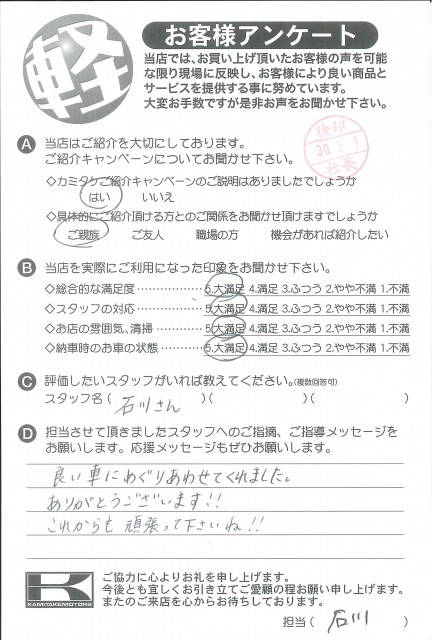 軽
お客様アンケート
当店では、お買い上げ頂いたお客様の声を可能
な限り現場に反映し、お客様により良い商品と
サービスを提供する事に努めています。
大変お手数ですが是非お声をお聞かせ下さい。
検印
30.3.1
社長
A 当店はご紹介を大切にしております。
ご紹介キャンペーンについてお聞かせ下さい。
◇カミタケご紹介キャンペーンのご説明はありましたでしょうか
はい いいえ
◇具体的にご紹介頂ける方とのご関係をお聞かせ頂けますでしょうか
ご親族 ご友人 職場の方 機会があれば紹介したい
B 当店を実際にご利用になった印象をお聞かせ下さい。
◇総合的な満足度……………………5.大満足 4.満足 3.ふつう 2.やや不満 1.不満
◇スタッフの対応……………………5.大満足 4.満足 3.ふつう 2.やや不満 1.不満
◇お店の雰囲気、清掃………………5.大満足 4.満足 3.ふつう 2.やや不満 1.不満
◇納車時のお車の状態………………5.大満足 4.満足 3.ふつう 2.やや不満 1.不満
C 評価したいスタッフがいれば教えてください。(複数回答可)
スタッフ名( 石川さん )( )( )
D 担当させて頂きましたスタッフへのご指摘、ご指導メッセージを
お願いします。応援メッセージもぜひお願いします。
良い車にめぐりあわせてくれました。
ありがとうございます!!
これからも頑張って下さいね!!
K
KAMITAKEMOTORS
ご協力に心よりお礼を申し上げます。
今後とも宜しくお引き立てご愛顧の程お願い申し上げます。
またのご来店を心からお待ちしております。
担当( 石川 )